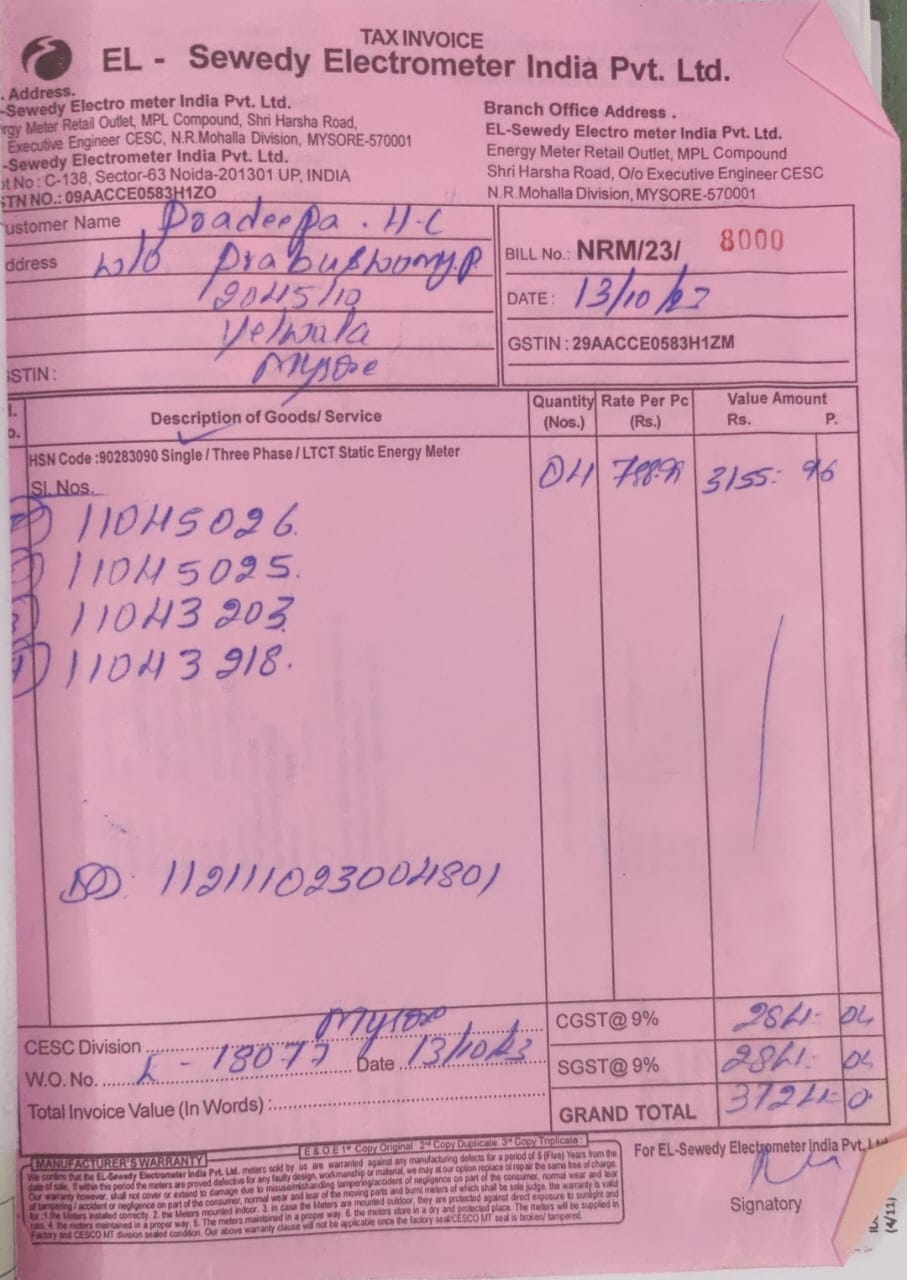 TAX INVOICE
EL - Sewedy Electrometer India Pvt. Ltd.
. Address.
-Sewedy Electro meter India Pvt. Ltd.
rgy Meter Retail Outlet, MPL Compound, Shri Harsha Road,
Executive Engineer CESC, N.R.Mohalla Division, MYSORE-570001
-Sewedy Electrometer India Pvt. Ltd.
ot No : C-138, Sector-63 Noida-201301 UP, INDIA
STN NO.: 09AACCE0583H1ZO
Branch Office Address .
EL-Sewedy Electro meter India Pvt. Ltd.
Energy Meter Retail Outlet, MPL Compound
Shri Harsha Road, O/o Executive Engineer CESC
N.R.Mohalla Division, MYSORE-570001
ustomer Name Pradeepa . H-C
ddress W/o Prabuswamy.P
20415/10
Yelwala
Mysore
STIN :
BILL No.: NRM/23/ 8000
DATE : 13/10/23
GSTIN : 29AACCE0583H1ZM
Description of Goods/ Service
Quantity (Nos.)
Rate Per Pc (Rs.)
Value Amount
Rs. P.
HSN Code :90283090 Single / Three Phase / LTCT Static Energy Meter
Sl. Nos.
04 788.99 3155: 96
11045026.
11045025.
11043203.
11043218.
DD: 112111023004801
CESC Division Mysore
W.O. No. K - 18077 Date 13/10/23
Total Invoice Value (In Words) :
CGST@ 9% 284- 04
SGST@ 9% 284- 04
GRAND TOTAL 3724-0
E & O E 1st Copy Original : 2nd Copy Duplicate: 3rd Copy Triplicate :
MANUFACTURER'S WARRANTY
We confirm that the EL-Sewedy Electrometer India Pvt. Ltd. meters sold by us are warranted against any manufacturing defects for a period of 5 (Five) Years from the
date of sale, If within this period the meters are proved defective for any faulty design, workmanship or material, we may at our option replace of repair the same free of charge.
Our warranty however, shall not cover or extend to damage due to misuse/mishandling tampering/accident of negligence on part of the consumer, normal wear and tear
of tampering / accident or negligence on part of the consumer, normal wear and tear of the moving parts and burnt meters of which shall be sole judge. the warranty is valid
for :1 the Meters installed correctly. 2. the Meters mounted indoor. 3. in case the Meters are mounted outdoor, they are protected against direct exposure to sunlight and
rain. 4. the meters maintained in a proper way. 5. The meters maintained in a proper way. 6. the meters store in a dry and protected place. The meters will be supplied in
Factory and CESCO MT division sealed condition. Our above warranty clause will not be applicable once the factory seal/CESCO MT seal is broken/ tampered.
For EL-Sewedy Electrometer India Pvt. Ltd
Signatory
(4/11)